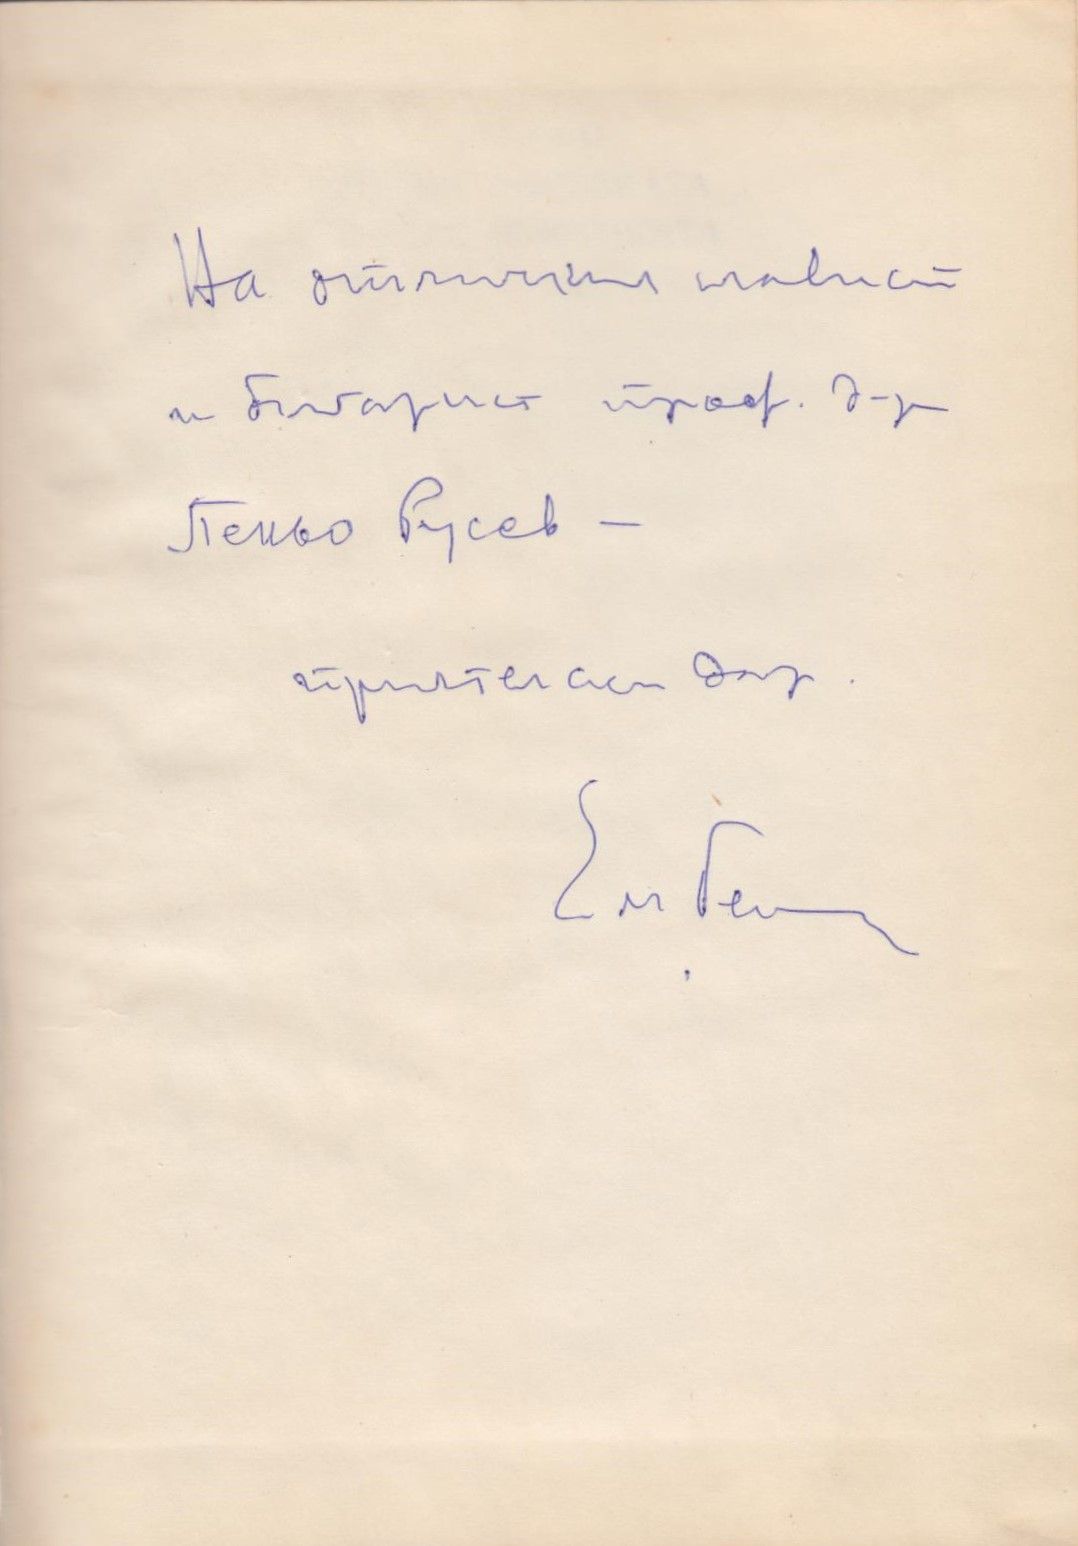 На отличния славист
и българист проф. д-р
Пеньо Русев –
приятелски дар.
Ем. Ген